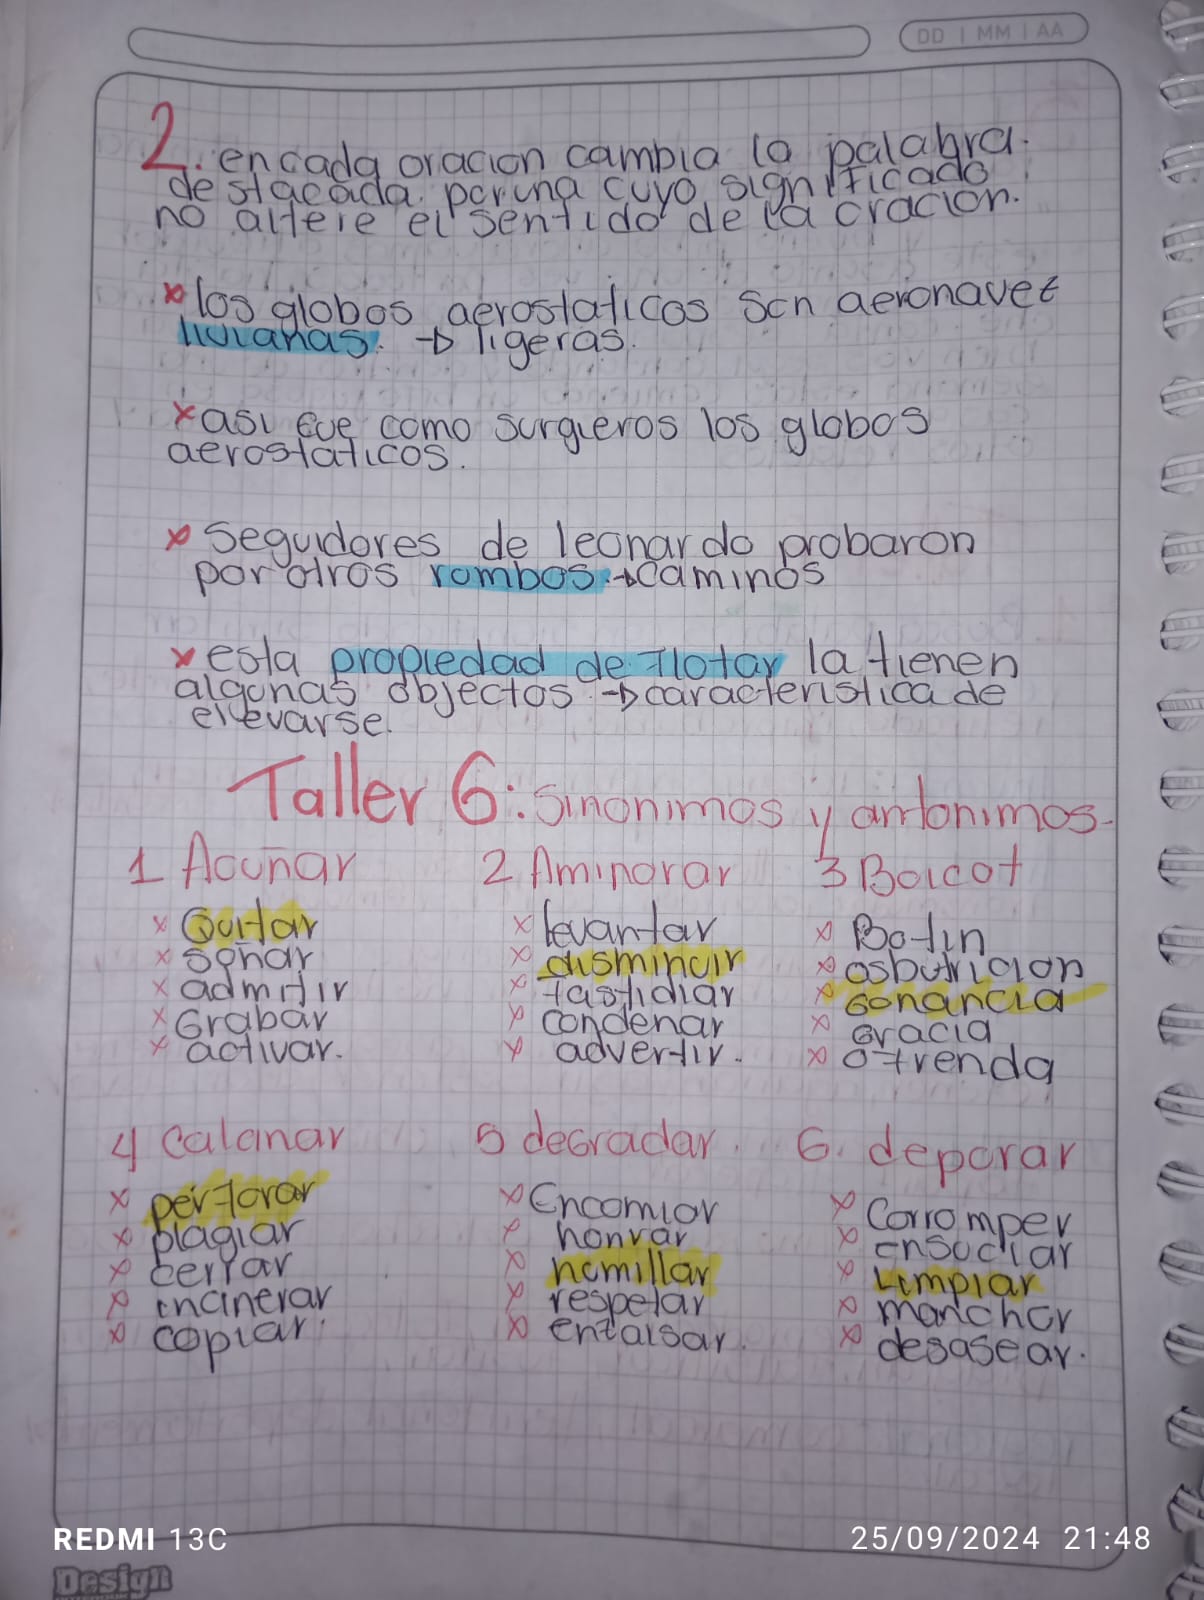 DD | MM | AA
2. en cada oracion cambia la palabra
destacada por una cuyo significado
no altere el sentido de la oracion.
x los globos aerostaticos son aeronavet
livianas. → ligeras.
x asi fue como surgieros los globos
aerostaticos.
x Seguidores de leonardo probaron
por otros rombos. → caminos
x esta propiedad de flotar la tienen
algunas objectos → caracteristica de
elevarse.
Taller 6: sinonimos y antonimos-
1 Acuñar 2 Aminorar 3 Boicot
x Quitar x levantar x Botin
x soñar x disminuir x osbutricion
x admitir x fastidiar x Gonancia
x Grabar x condenar x Gracia
x activar. x advertir. x ofrenda
4 calanar 5 degradar. 6. deporar
x perforar x Encomior x Corromper
x plagiar x honrar x ensuciar
x cerrar x homillar x Limpiar
x incinerar x respetar x manchar
x copiar. x enfalsar. x desasear.
REDMI 13C 25/09/2024 21:48
Design